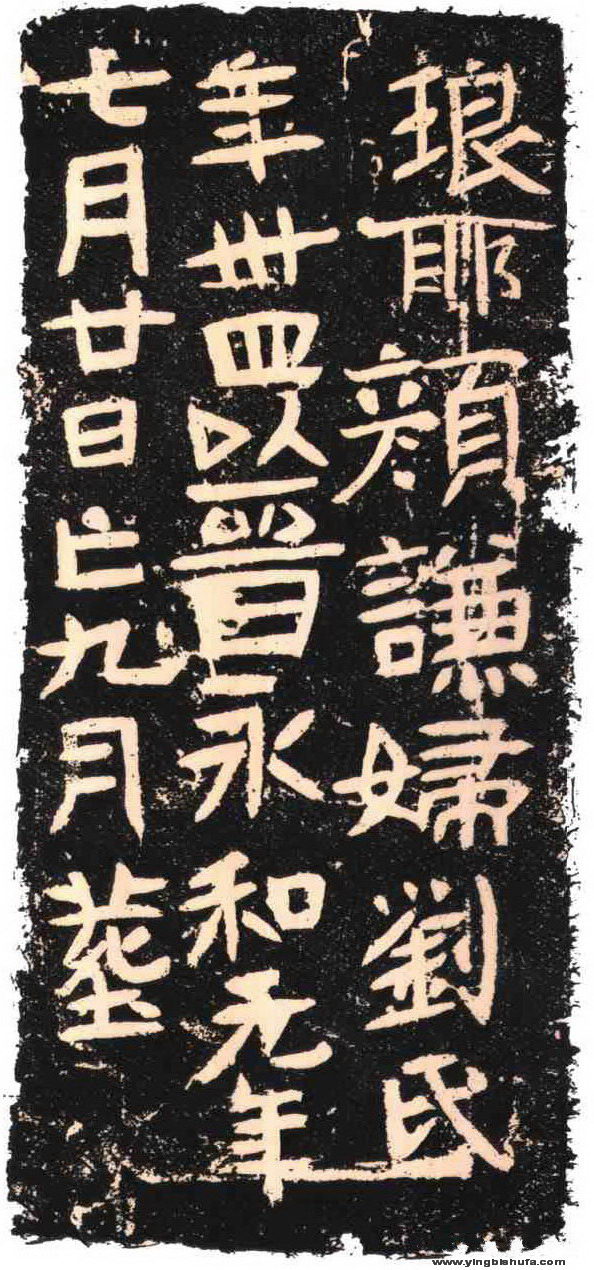 琅耶顔謙婦劉氏
年卅四以晉永和元年
七月廿日亡九月葬
www.yingbishufa.com